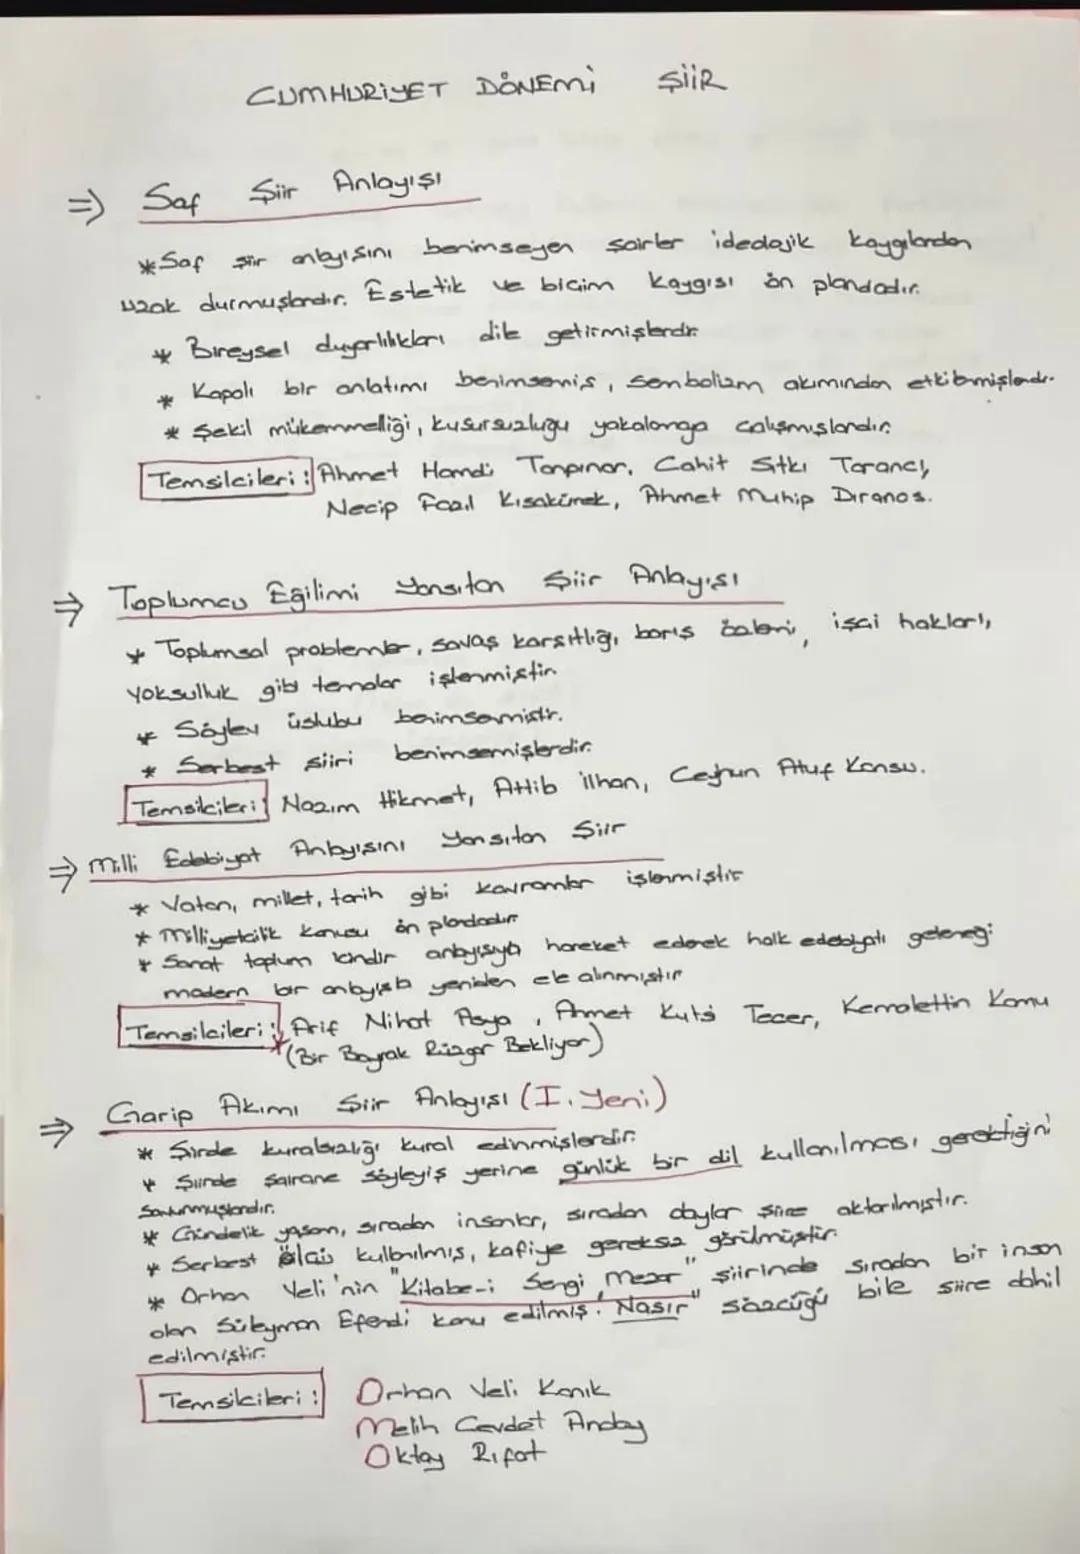 CUMHURİYET DÖNEMİ ŞİİR
⇒ Saf Şiir Anlayışı
* Saf şiir anlayışını benimseyen şairler ideolojik kaygılardan
uzak durmuşlardır. Estetik ve biçim kaygısı ön plandadır.
* Bireysel duyarlılıkları dile getirmişlerdir.
* Kapalı bir anlatımı benimsemiş, sembolizm akımından etkilenmişlerdir.
* Şekil mükemmelliği, kusursuzluğu yakalamaya çalışmışlardır.
Temsilcileri: Ahmet Hamdi Tanpınar, Cahit Sıtkı Tarancı,
Necip Fazıl Kısakürek, Ahmet Muhip Dıranas.
⇒ Toplumcu Eğilimi Yansıtan Şiir Anlayışı
* Toplumsal problemler, savaş karşıtlığı, barış özlemi, işçi hakları,
yoksulluk gibi temalar işlenmiştir.
* Söylev üslubu benimsemiştir.
* Serbest şiiri benimsemişlerdir.
Temsilcileri: Nazım Hikmet, Attila İlhan, Ceyhun Atuf Kansu.
⇒ Milli Edebiyat Anlayışını Yansıtan Şiir
* Vatan, millet, tarih gibi kavramlar işlenmiştir
* Milliyetçilik konusu ön plandadır
* Sanat toplum içindir anlayışıyla hareket ederek halk edebiyatı geleneği
modern bir anlayışla yeniden ele alınmıştır
Temsilcileri: Arif Nihat Asya, Ahmet Kutsi Tecer, Kemalettin Kamu
*(Bir Bayrak Rüzgar Bekliyor)
⇒ Garip Akımı Şiir Anlayışı (I. Yeni)
* Şiirde kuralsızlığı kural edinmişlerdir.
* Şiirde şairane söyleyiş yerine günlük bir dil kullanılması gerektiğini
savunmuşlardır.
* Gündelik yaşam, sıradan insanlar, sıradan olaylar şiire aktarılmıştır.
* Serbest ölçü kullanılmış, kafiye gereksiz görülmüştür.
* Orhan Veli'nin "Kitabe-i Sengi Mezar" şiirinde sıradan bir insan
olan Süleyman Efendi konu edilmiş. "Nasır" sözcüğü bile şiire dahil
edilmiştir.
Temsilcileri: Orhan Veli Kanık
Melih Cevdet Anday
Oktay Rıfat